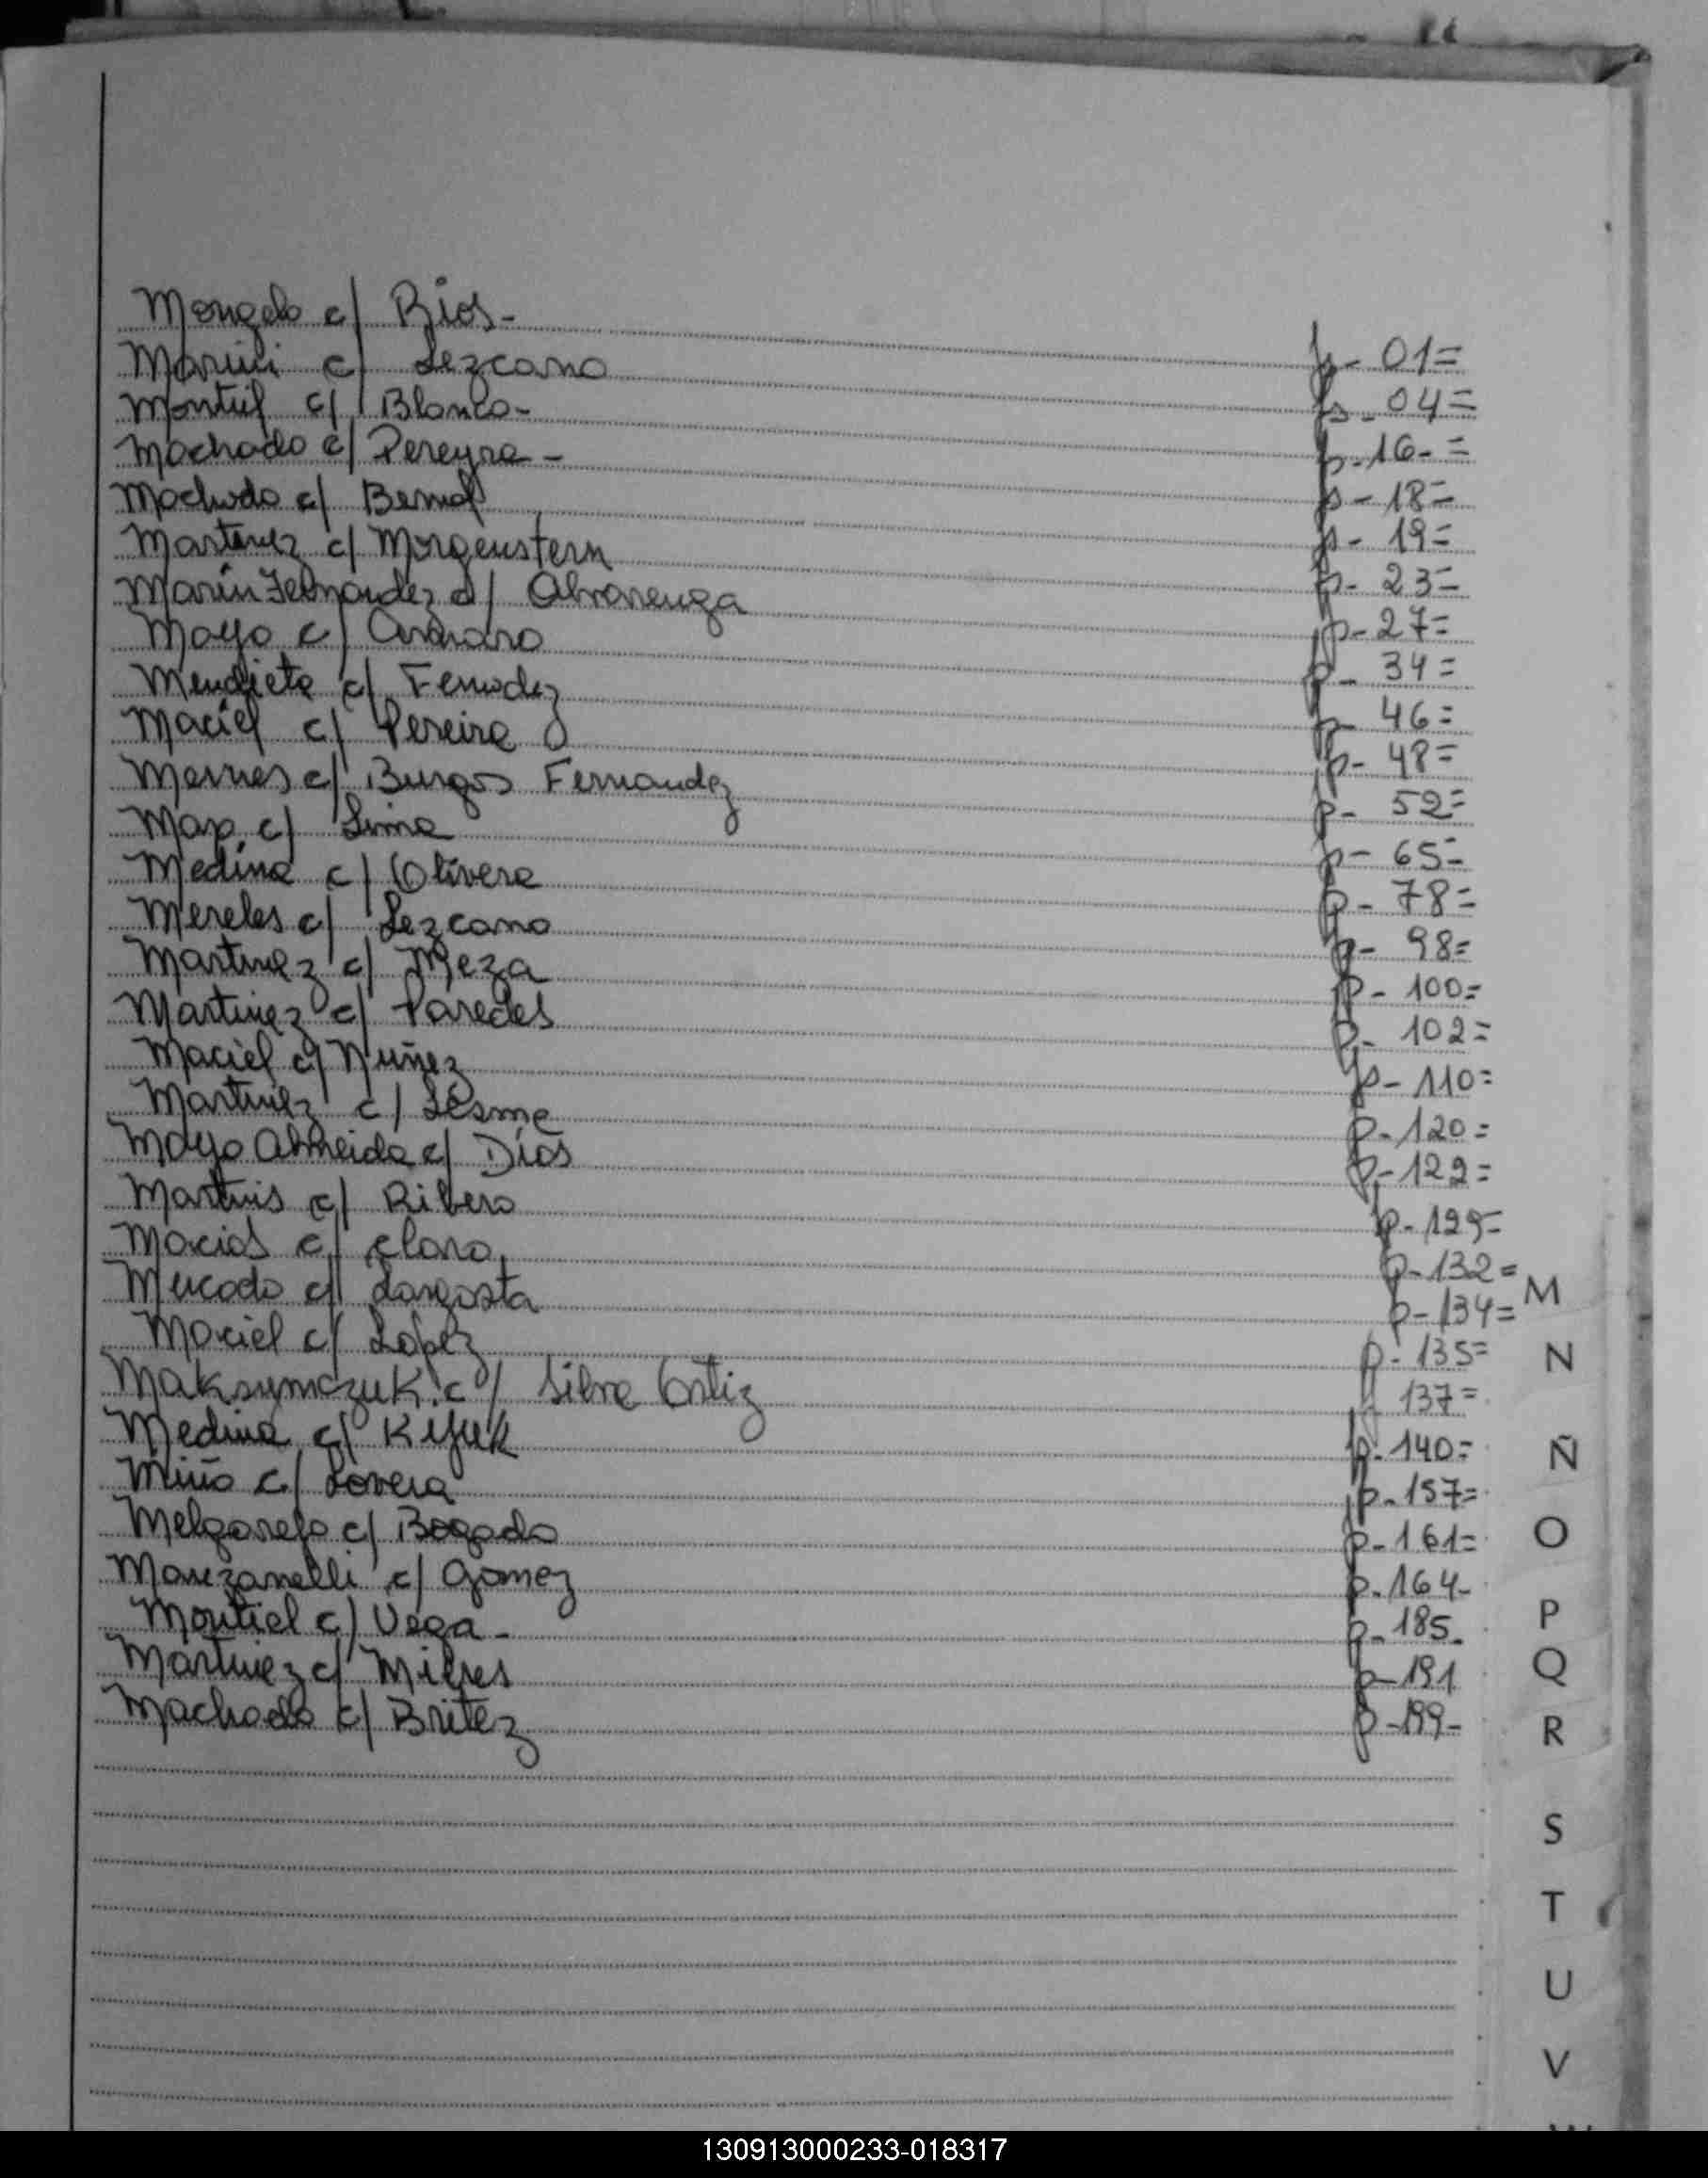 Mongelo c/ Rios- p- 01=
Marini c/ Lezcano p- 04=
Montiel c/ Blanco- p-16-=
Machado c/ Pereyra- p-18=
Machado c/ Bernal p- 19=
Martinez c/ Morgenstern p- 23=
Marin Fernandez c/ Alvarenga p-27=
Mayo c/ p- 34=
Mendieta c/ Fernadez p- 46=
Maciel c/ Pereira p- 48=
Mernes c/ Burgos Fernandez p- 52=
c/ Lima p- 65=
Medina c/ Olivera p- 78=
Mereles c/ Lezcano p- 98=
Martinez c/ Meza p- 100=
Martinez c/ Paredes p- 102=
Maciel c/ Nuñez p- 110=
Martinez c/ Lesme p-120=
Mayo Almeida c/ Dios p-122=
Martins c/ Ribero p-129=
Macias c/ Claro p-132=
Mercado c/ Langosta p-134=
Maciel c/ Lopez p- 135=
Maksymczuk c/ Silva Ortiz 137=
Medina c/ Kijuk p-140=
Miño c/ Lovera p-157=
Melgarejo c/ Bogado p-161=
Manzanelli c/ Gomez p-164-
Montiel c/ Vega- p-185-
Martinez c/ Mieres p-191
Machado c/ Britez p-199-
M
N
Ñ
O
P
Q
R
S
T
U
V
130913000233-018317